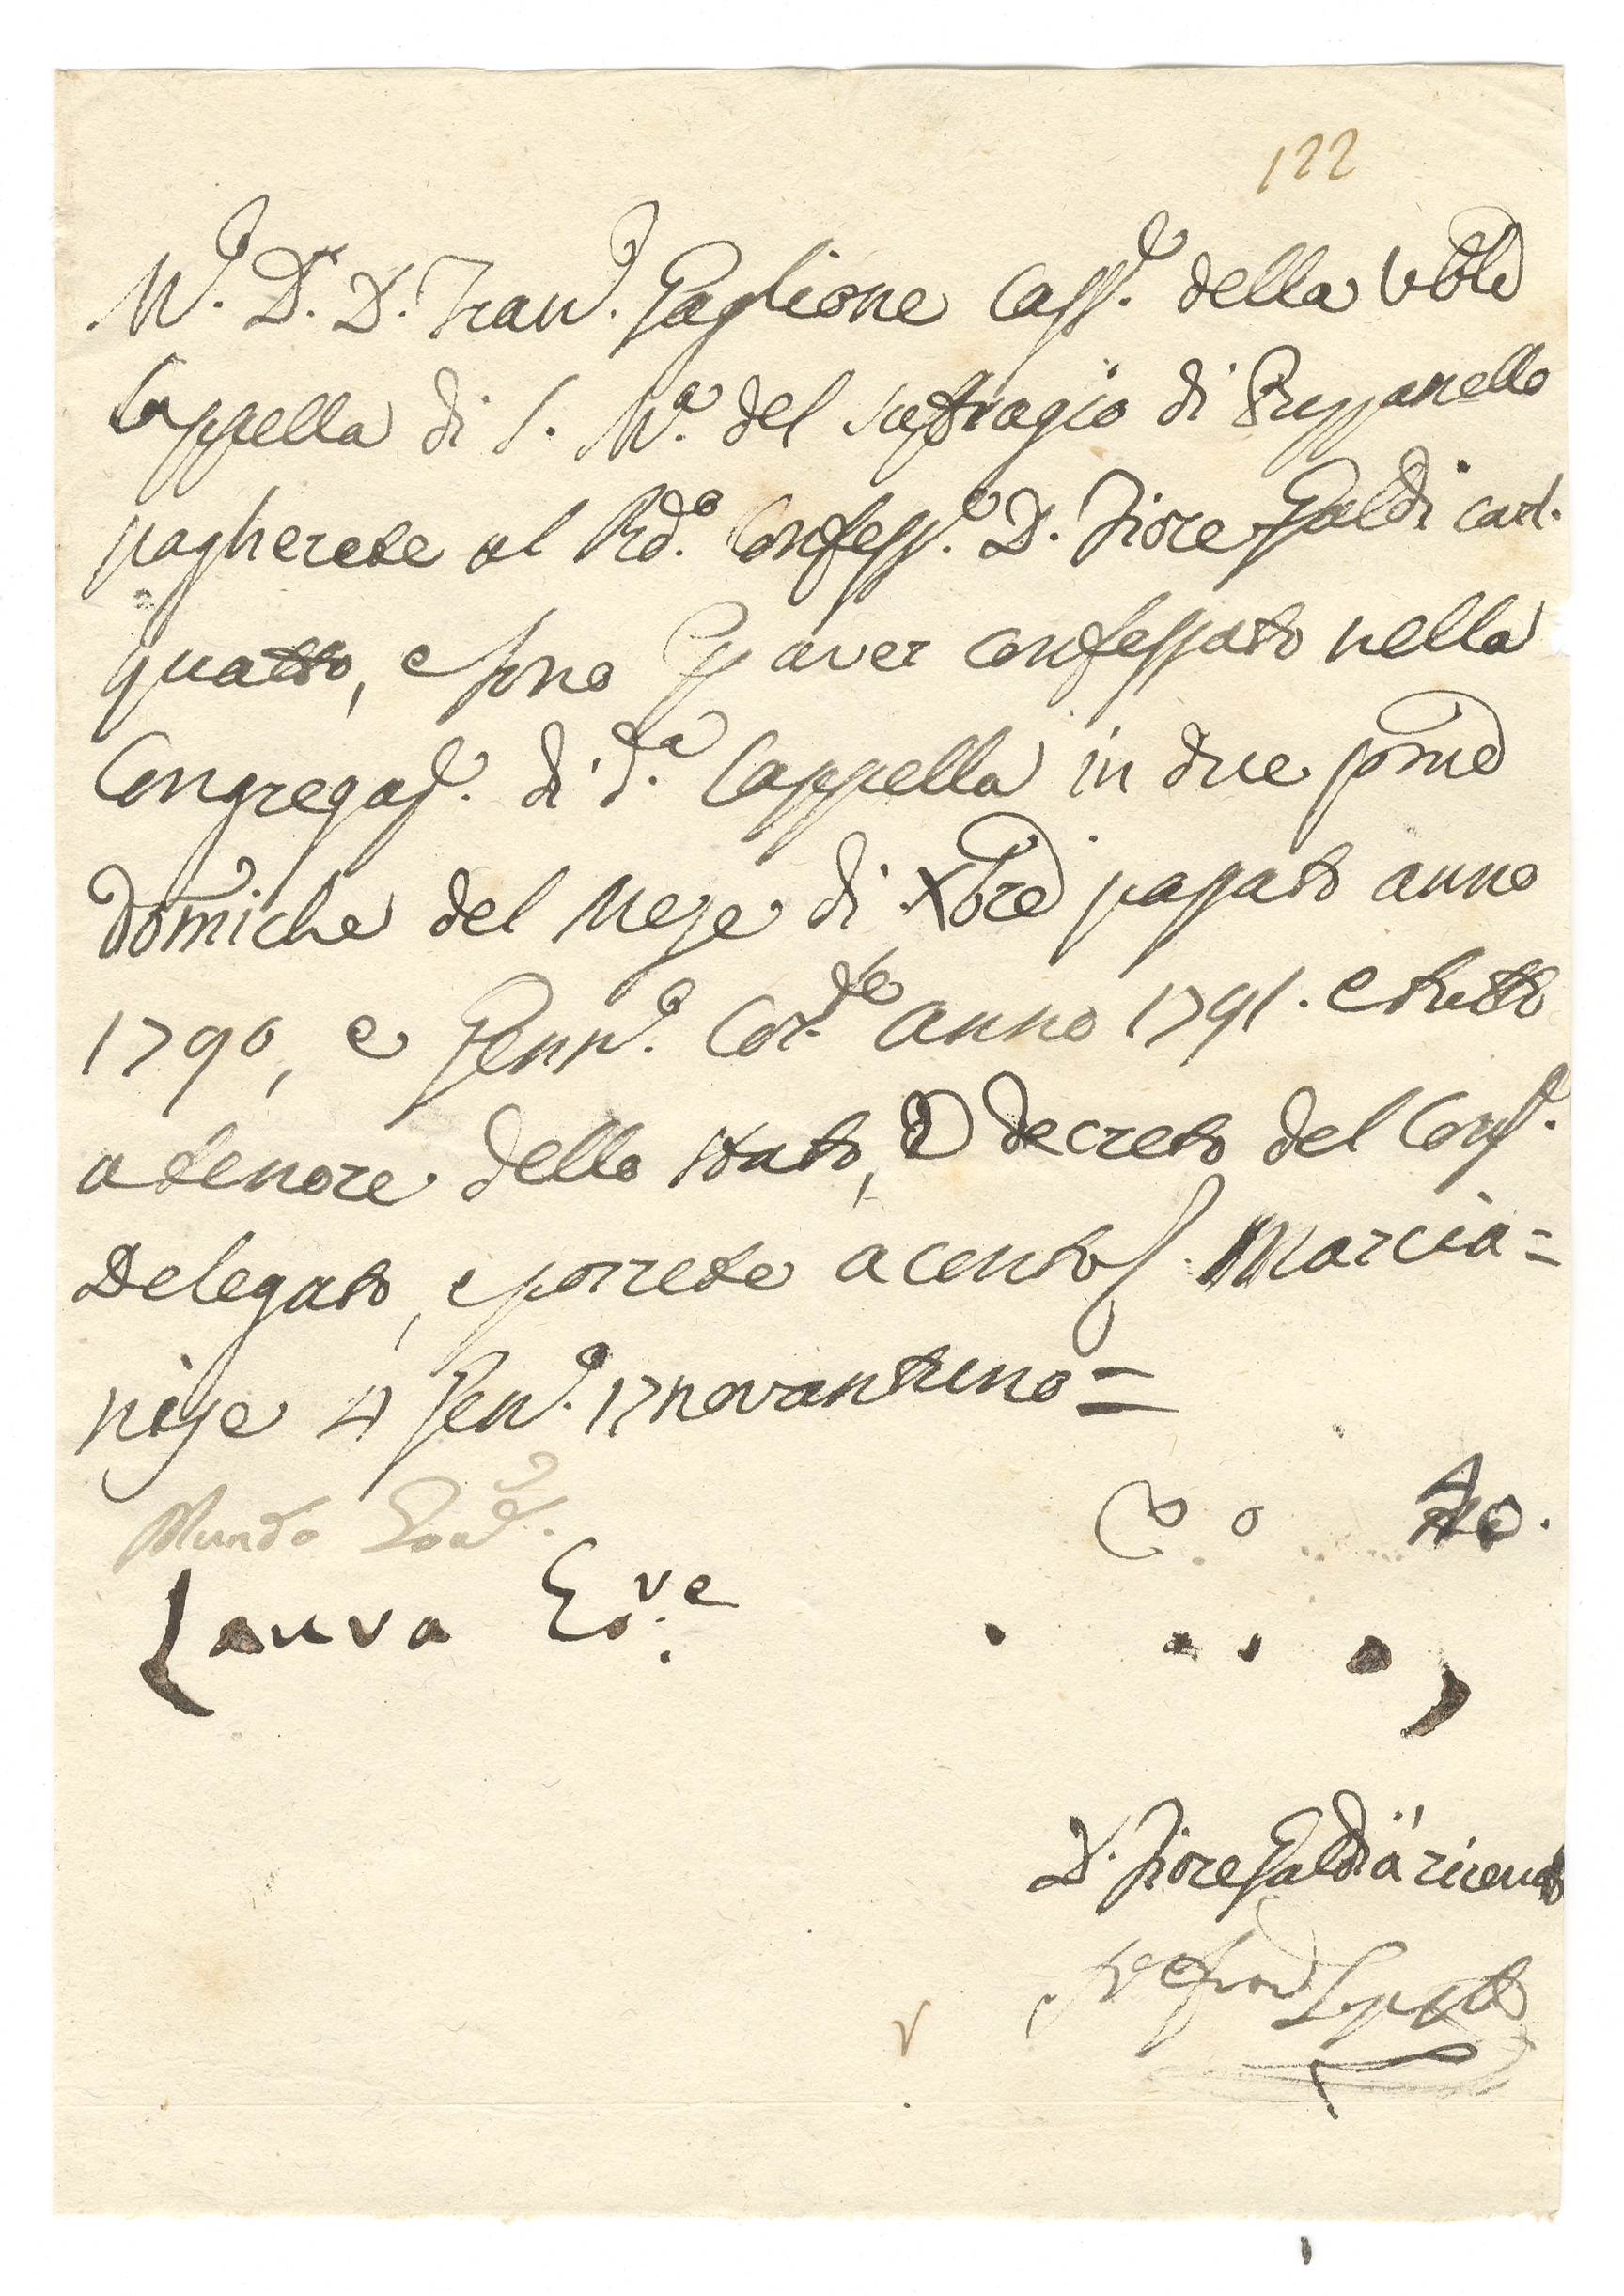 122
M.co D.r D. Fran.co Gaglione Cass.re della Ve͠ble
Cappella di S. M.a del suffragio di Puzzanello
pagherete al Rd.o Confess.e D. Fiore Galdi carl.
quattro, e sono p aver confessato nella
Congregaz.e di d.a Cappella in due p͠me
Dom̃iche del Mese di Xbre passato anno
1790, e Genn.o Cor.te anno 1791. e tutto
a tenore dello stato, e decreto del Cons.e
Delegato, e ponete a conto. Marcia=
nise 4 Gen.o 17novantuno=
Mundo Gov.e
Lauva Go.ve
D. Fiore Galdi à ricevuto